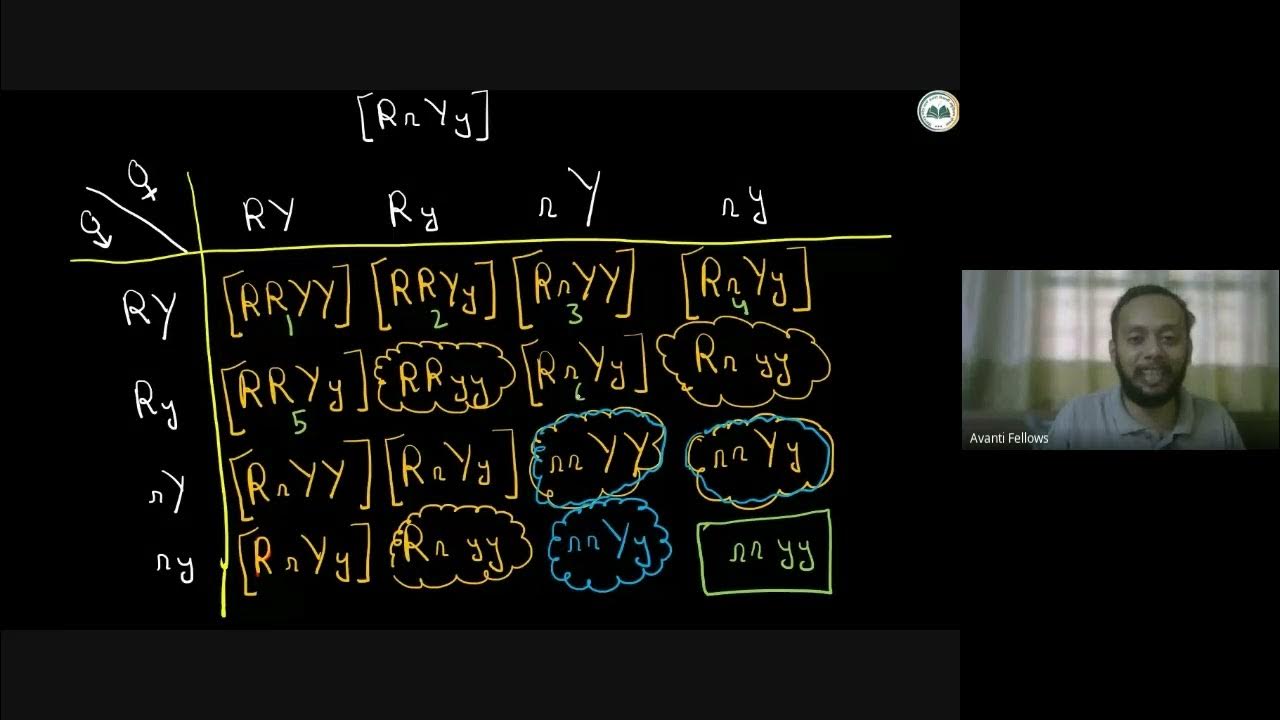 [RrYy]
RY Ry rY ry
RY [RRYY] [RRYy] [RrYY] [RrYy]
1 2 3 4
Ry [RRYy] RRyy [RrYy] Rryy
5 6
rY [RrYY] [RrYy] rrYY rrYy
ry [RrYy] Rryy rrYy rryy
Avanti Fellows